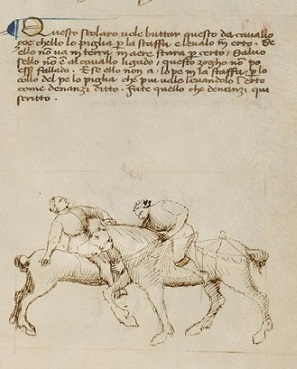 Questo scolaro vole buttar questo da cavallo
çoe chello lo piglia p la staffa e levalo in erto. Se
ello non va in terra in aere stara p certo. Salvo
sello non è al cavallo ligado questo zogho non po
esser fallado. E se ello non a lo pe in la staffa p lo
collo del pe lo piglia che piu vale levandolo in erto
come denanzi ditto. Fate quello che denanzi qui
scritto.